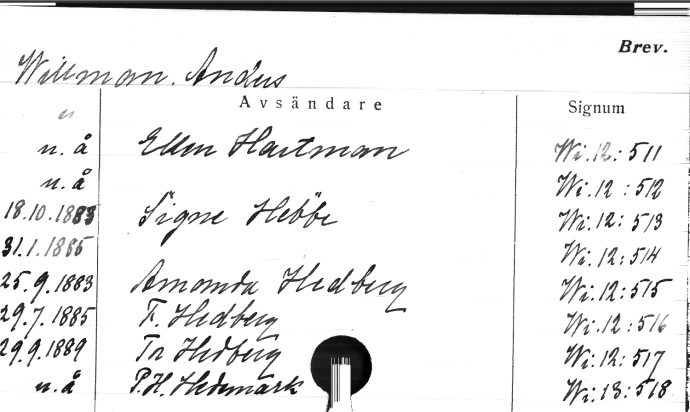 Brev.
Willman. Anders
Avsändare Signum
n.å Ellen Hartman Wi.12:511
n.å Wi.12:512
18.10.1883 Signe Hebbe Wi.12:513
31.1.1885 Wi.12:514
25.9.1883 Amanda Hedberg Wi.12:515
29.7.1885 F. Hedberg Wi.12:516
29.9.1889 Tor Hedberg Wi.12:517
n.å P.H. Hedemark Wi:13:518